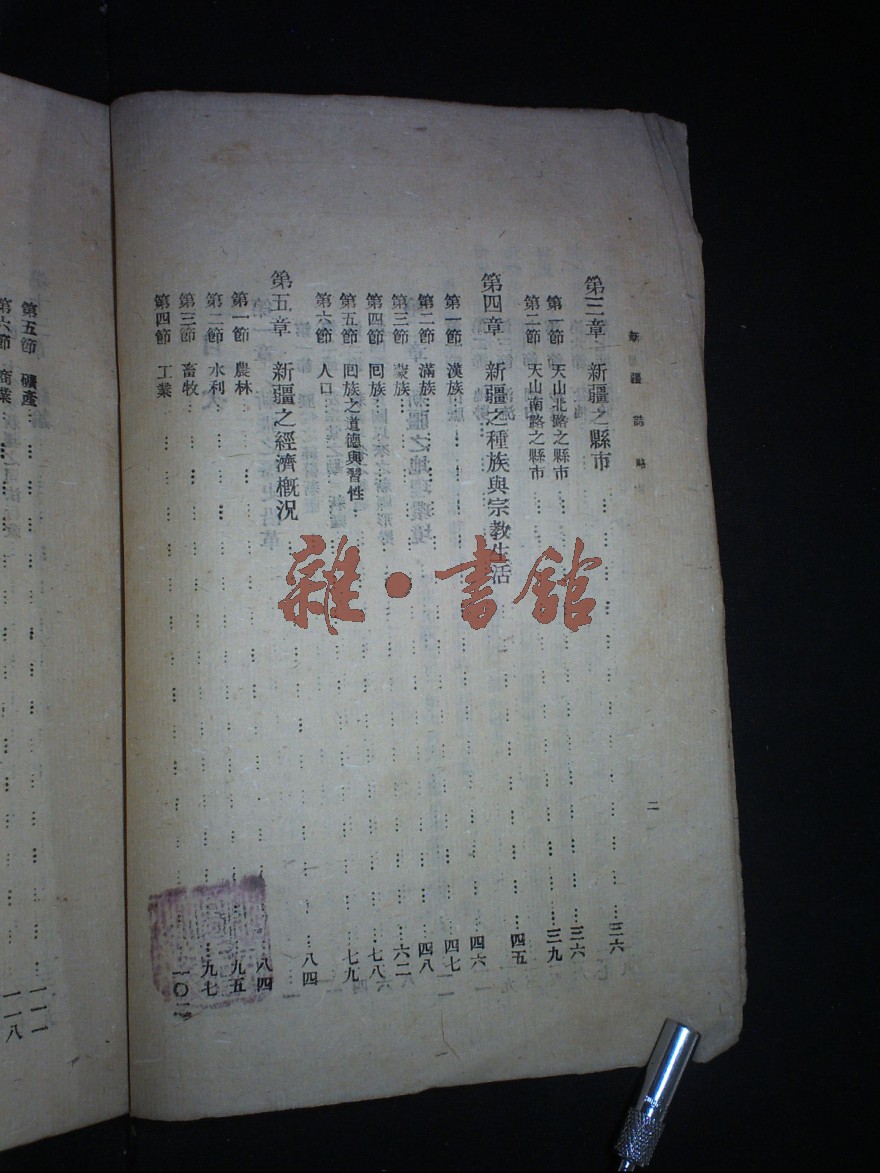 新疆誌略
二
第三章 新疆之縣市……三六
第一節 天山北路之縣市……三六
第二節 天山南路之縣市……三九
第四章 新疆之種族與宗教生活……四五
第一節 漢族……四六
第二節 滿族……四七
第三節 蒙族……四八
第四節 回族……六二
第五節 回族之道德與習性……七八
第六節 人口……七九
第五章 新疆之經濟概況……八四
第一節 農林……八四
第二節 水利……九五
第三節 畜牧……九七
第四節 工業……一〇二
第五節 礦產……一一一
第六節 商業……一一八
雜·書館